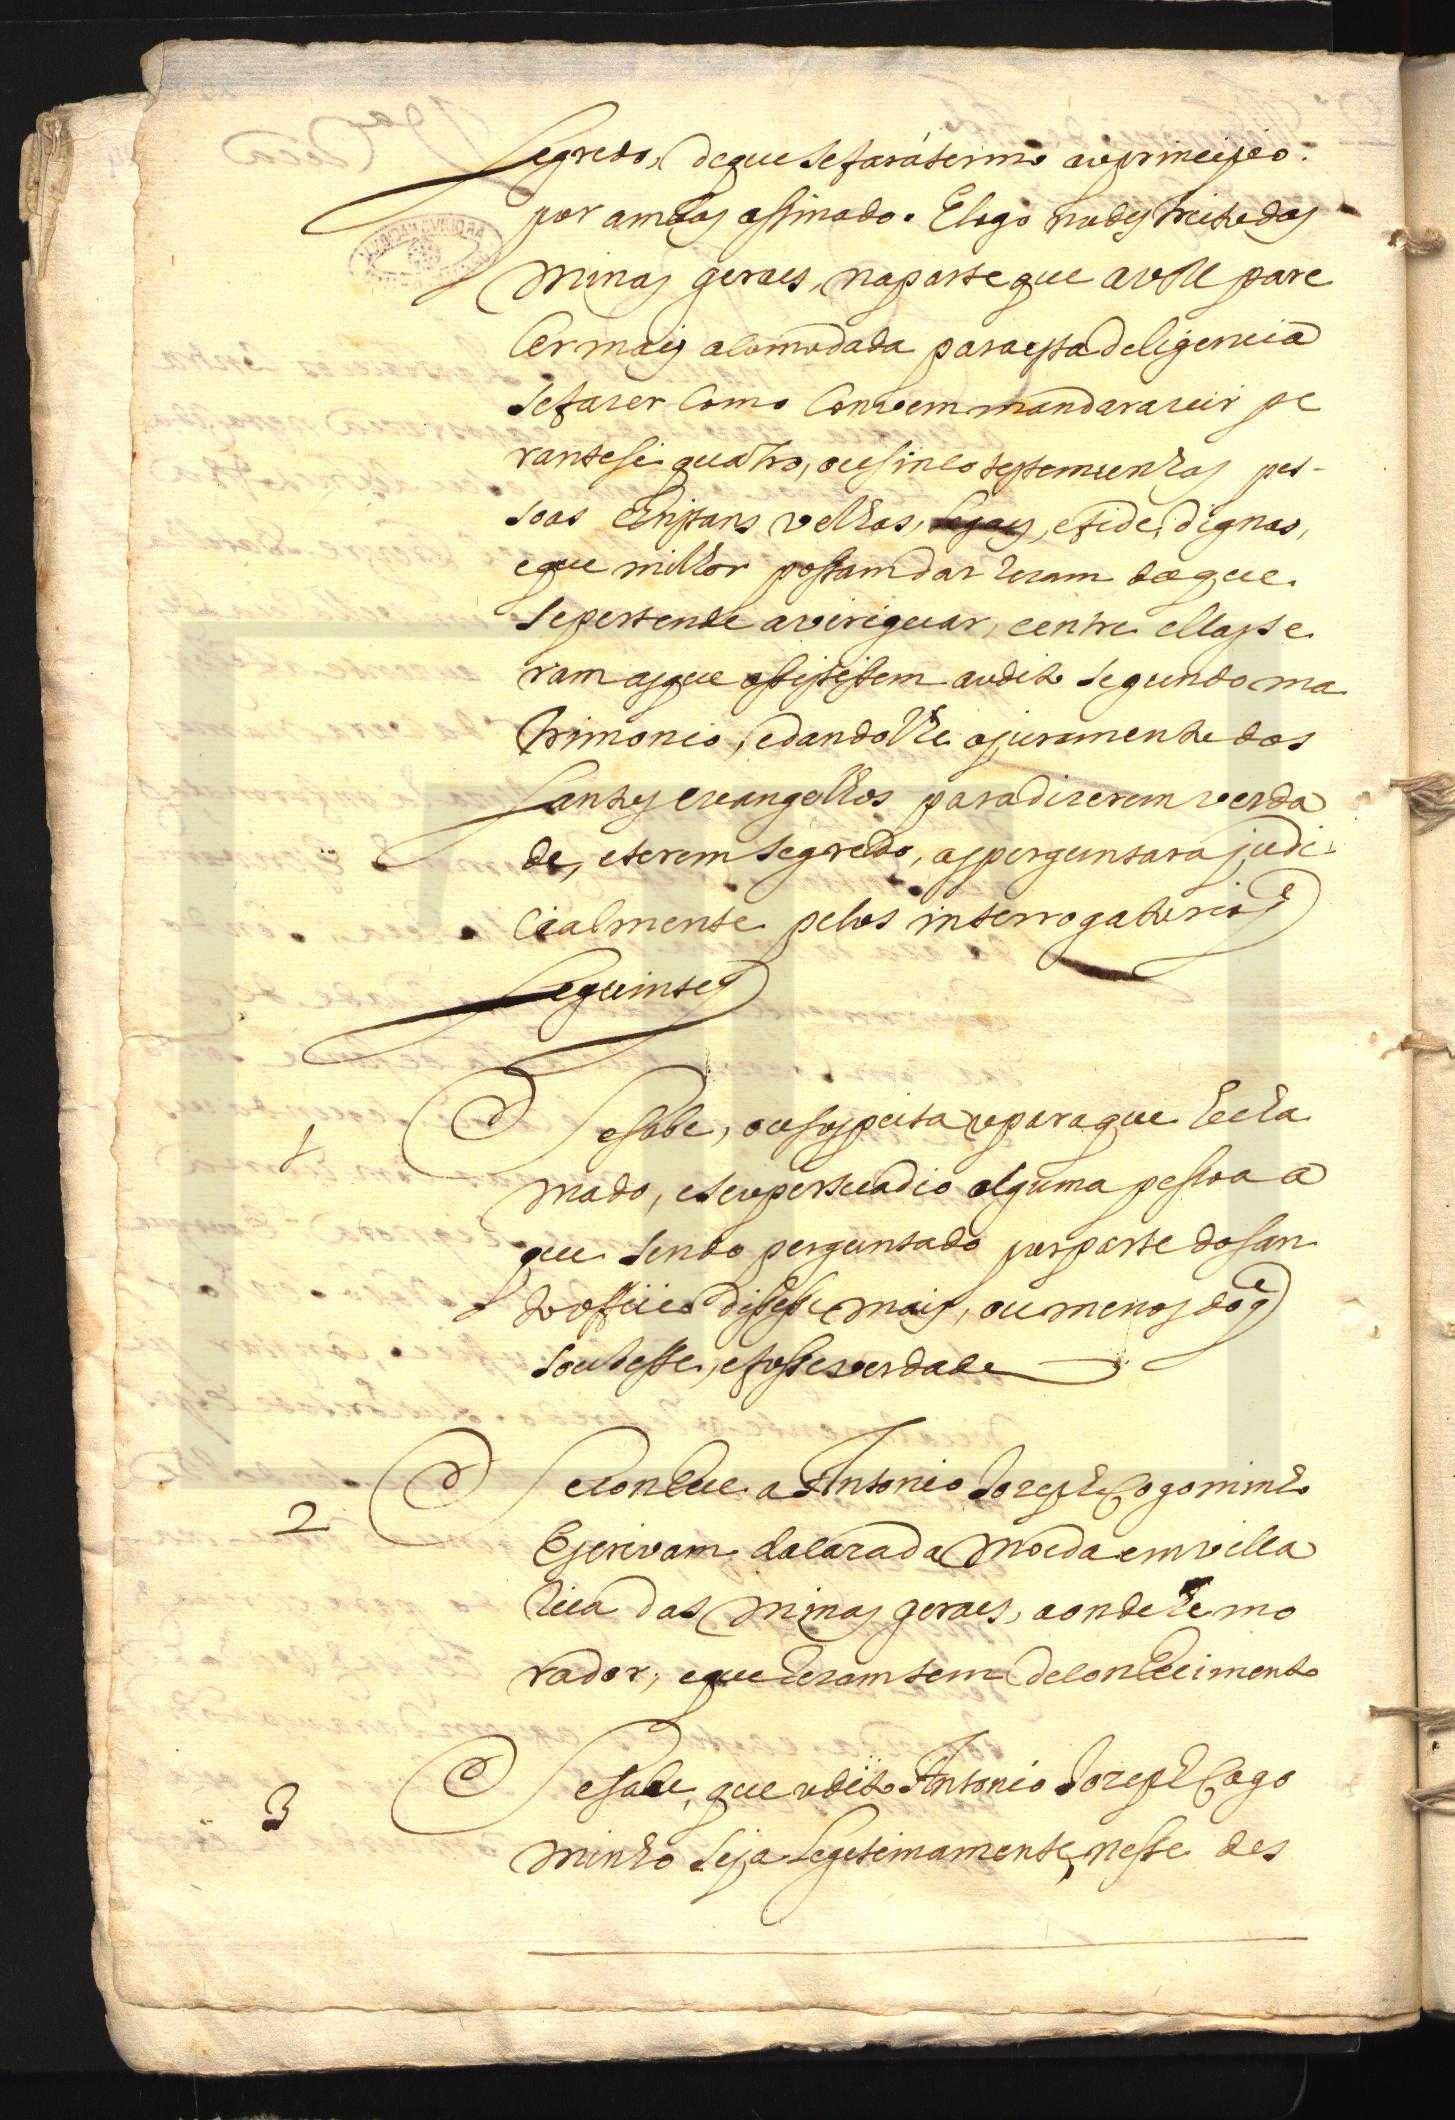 segredo, deque sefará termo aoprincipio.
por ambos assinado. Elogo nodestricto das
Minas geraes, naparte que avm pare
cer mais acomodada paraesta deligencia
sefazer como convem mandara vir pe
rantesi quatro, ousinco testemunhas pes-
soas christans velhas, legaes, efide dignas,
eque milhor possam dar rezam doque
sepertende averiguar, eentre ellas se
ram asque assistissem aodito segundo ma
trimonio, edandolhe ojuramento dos
santos evangelhos paradizerem verda
de, eterem segredo, asperguntara judi
cialmente pelos interrogatorios
seguintes
1 Sesabe, ou sospeita oparaque he cha
mado, eseopersuadio alguma pessoa a
que sendo perguntado porparte dosan
to officio dissesse mais, oumenos doq
soubesse, efosse verdade
2 Seconhece a Antonio Jozeph Cogominho
Escrivam dacaza da Moeda emvilla
rica das Minas geraes, aonde he mo
rador, eque rezam tem deconhecimento
3 Sesabe, que odito Antonio Jozeph Cogo
minho seja legitimamente, nesse des